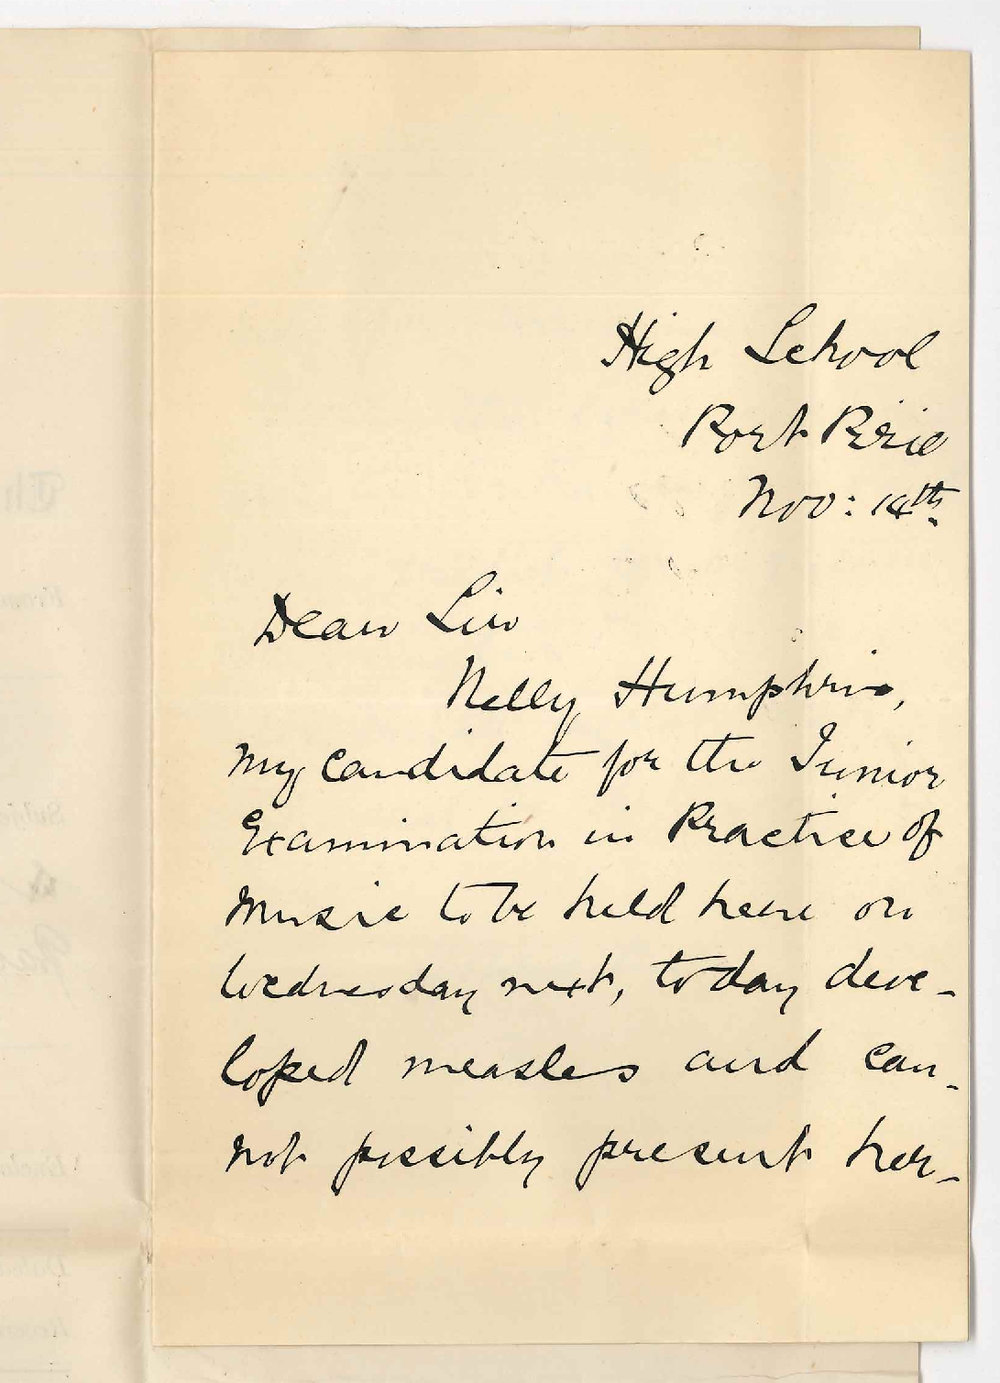 High School
Port Pirie
Nov: 14th.
Dear Sir
Nelly Humphris,
my candidate for the Junior
Examination in Practice of
Music to be held here on
Wednesday next, today deve-
loped measles and can-
not possibly present her-